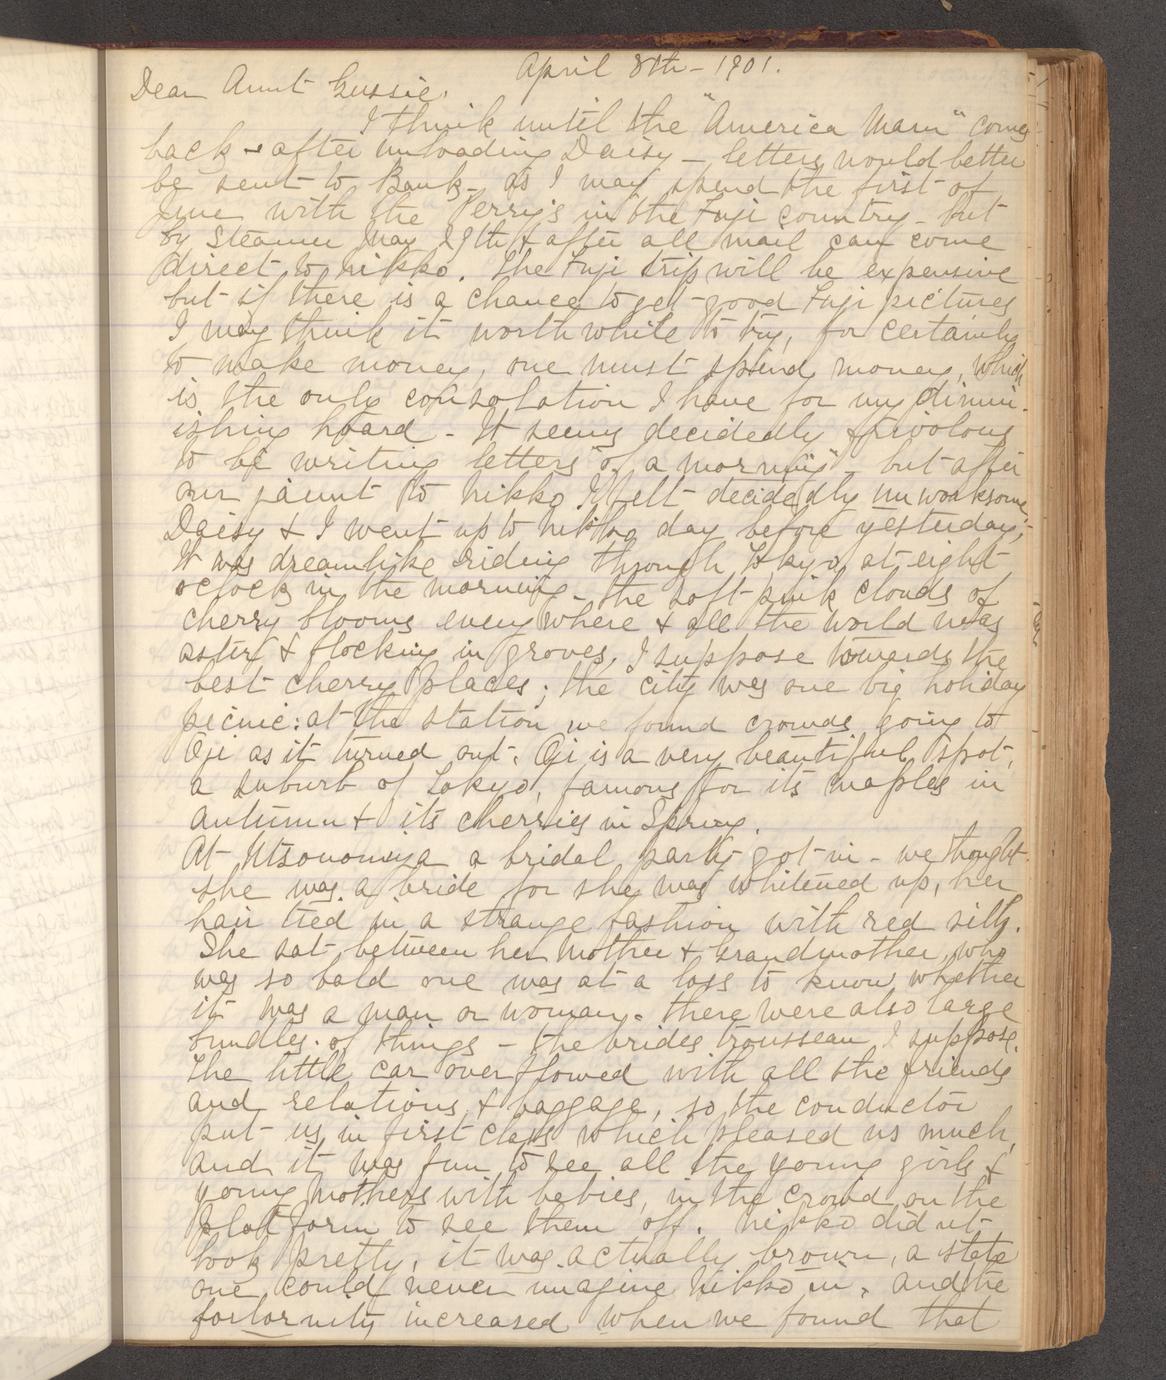 April 8th - 1901.
Dear Aunt Gussie.
I think until the "America Maru" comes
back & after unloading Daisy - letters would better
be sent to Bank - as I may spend the first of
June with the Perry's in the Fuji country - but
by Steamer May 19th & after all mail can come
direct to Nikko. The Fuji trip will be expensive
but if there is a chance to get good Fuji pictures
I may think it worth while to try, for certainly
to make money, one must spend money, which
is the only consolation I have for my dimin-
ishing hoard - It seems decidedly frivolous
to be writing letters "of a morning" - but after
our jaunt to Nikko I felt decidedly unworksome.
Daisy & I went up to Nikko day before yesterday,
It was dreamlike riding through Tokyo at eight
oclock in the morning - the soft pink clouds of
cherry blooms everywhere & all the world was
astir & flocking in groves, I suppose towards the
best cherry places; the city was one big holiday
picnic: at the station we found crowds going to
Oji as it turned out. Oji is a very beautiful spot,
a suburb of Tokyo, famous for its maples in
Autumn & its cherries in Spring.
At Utsonomiya a bridal party got in - we thought
she was a bride for she was whitened up, her
hair tied in a strange fashion with red silk.
She sat between her Mother & Grandmother, who
was so bald one was at a loss to know whether
it was a man or woman. There were also large
bundles of things - the brides trousseau I suppose.
The little car overflowed with all the friends
and relations & baggage, so the conductor
put us in first class which pleased us much,
and it was fun to see all the young girls &
young mothers with babies, in the crowd on the
platform to see them off. Nikko did n't
look pretty, it was actually brown, a state
one could never imagine Nikko in, and the
forlornity increased when we found that